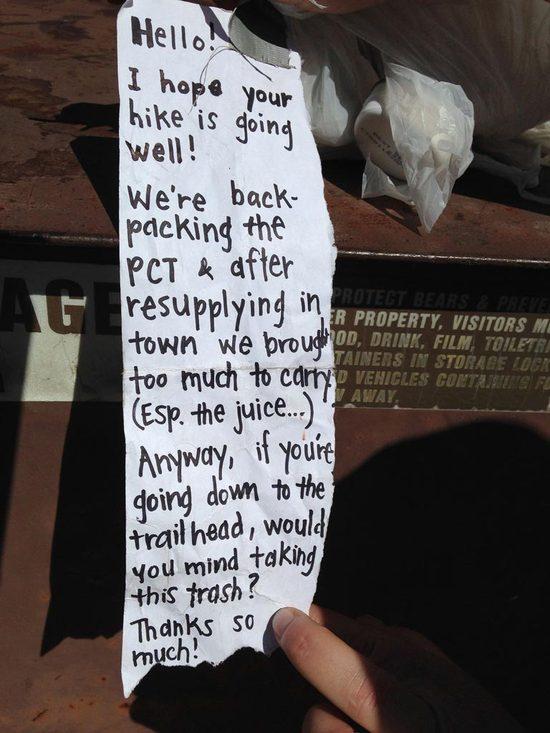 Hello!
I hope your
hike is going
well!
We're back-
packing the
PCT & after
resupplying in
town we brought
too much to carry.
(Esp. the juice...)
Anyway, if you're
going down to the
trailhead, would
you mind taking
this trash?
Thanks so
much!
AGE
PROTECT BEARS &
PROPERTY, VISITORS
DRINK, FILM,
IN STORAGE
VEHICLES CONTAINING
AWAY.